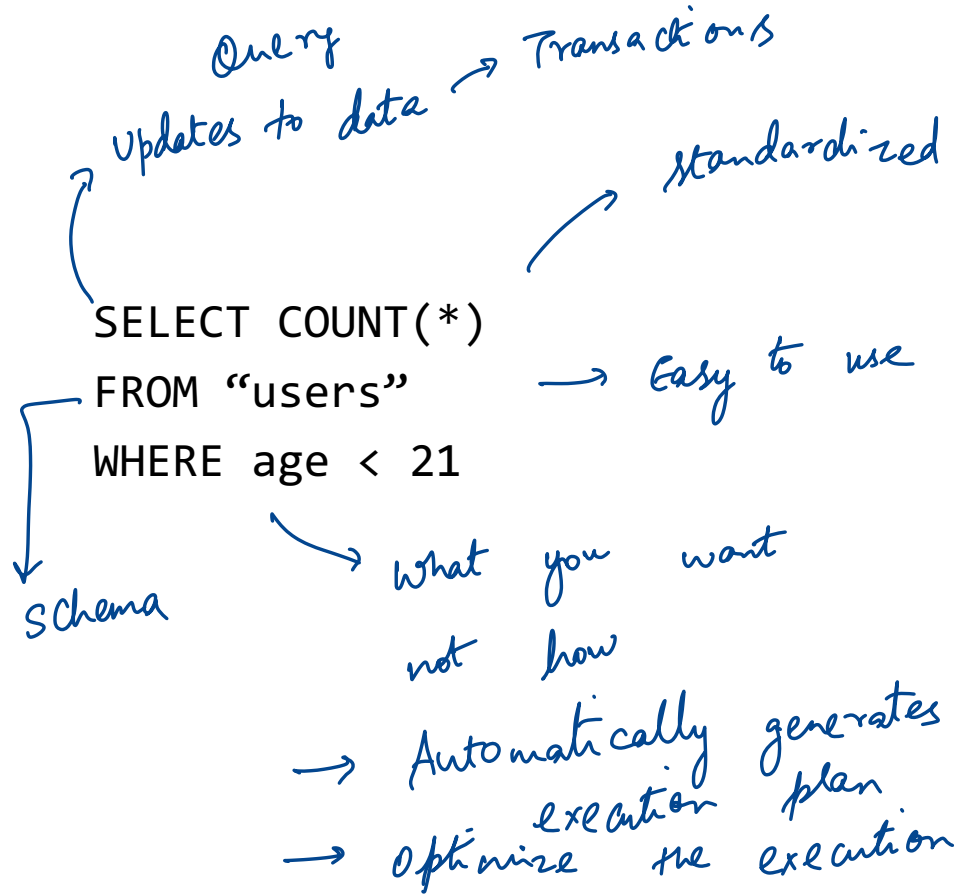 Query
updates to data → Transactions
standardized
SELECT COUNT(*)
FROM “users”
→ Easy to use
WHERE age < 21
schema
What you want
not how
→ Automatically generates
execution plan
→ Optimize the execution